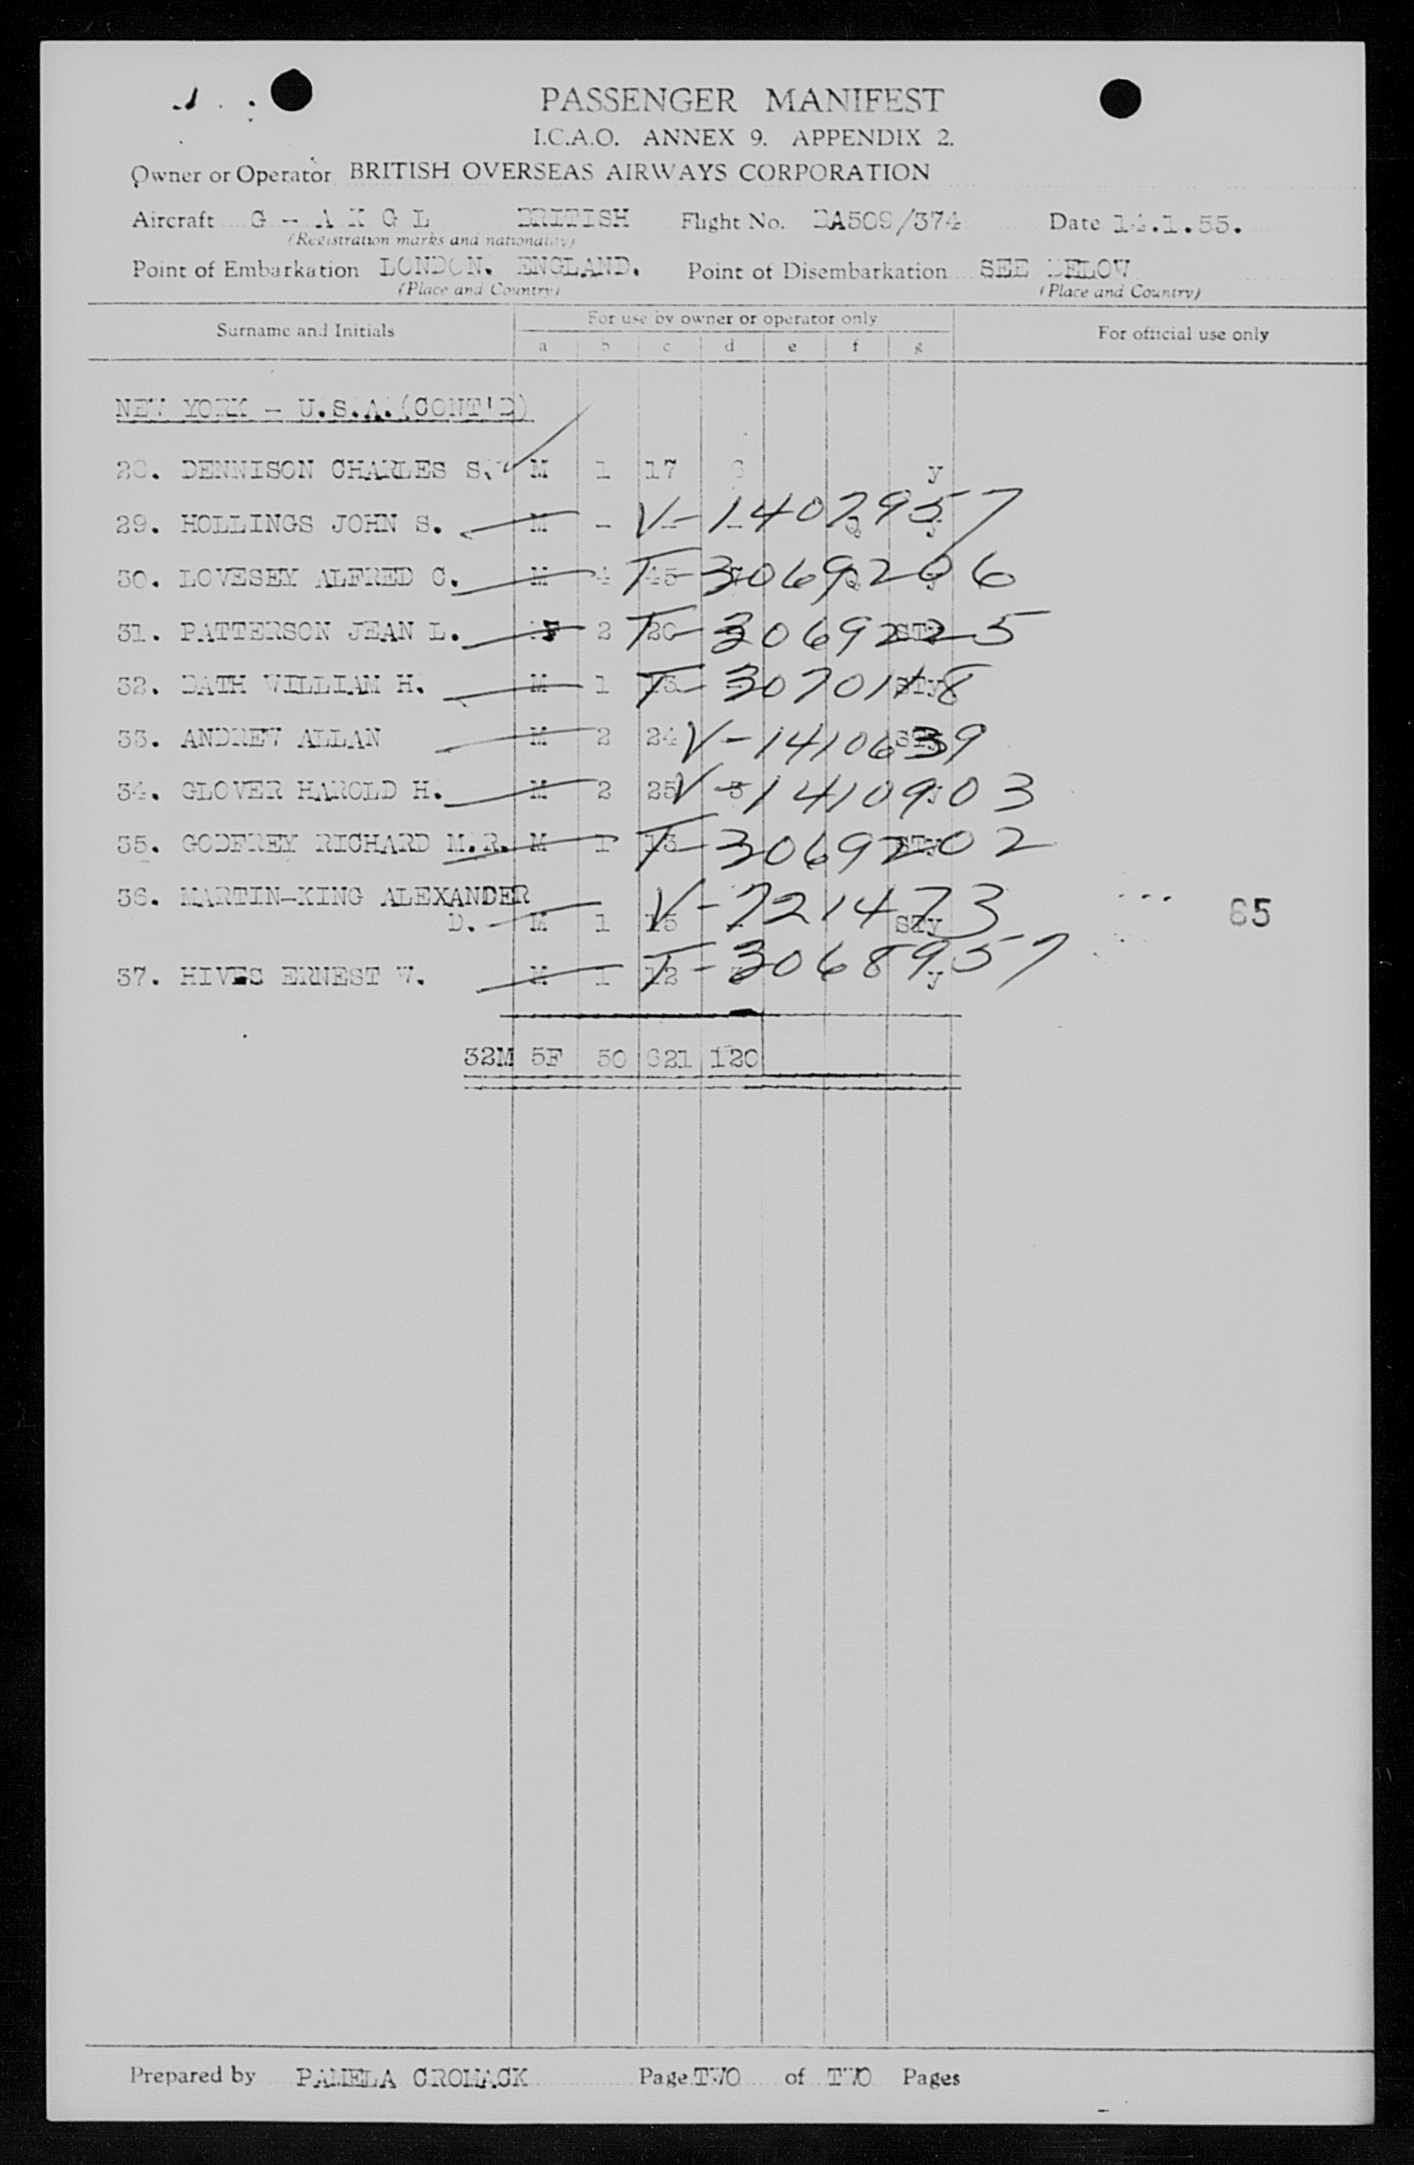 PASSENGER MANIFEST
I.C.A.O. ANNEX 9. APPENDIX 2.
Owner or Operator BRITISH OVERSEAS AIRWAYS CORPORATION
Aircraft G - A K G L BRITISH Flight No. BA509/374 Date 14.1.55.
(Registration marks and nationality)
Point of Embarkation LONDON. ENGLAND. Point of Disembarkation SEE BELOW
(Place and Country) (Place and Country)
Surname and Initials For use by owner or operator only For official use only
a b c d e f g
NEW YORK - U.S.A.(CONT'D)
28. DENNISON CHARLES S. M 1 17 y
29. HOLLINGS JOHN S. M - V-1407957
30. LOVESEY ALFRED C. M 4 45 T-3069206
31. PATTERSON JEAN L. F 2 20 T-3069225 STY
32. BATH WILLIAM H. M 1 15 T-3070118 STy
33. ANDREW ALLAN M 2 24 V-1410639
34. GLOVER HAROLD H. M 2 25 V-1410903
35. GODFREY RICHARD M.R. M 1 13 T-3069202 STy
36. MARTIN-KING ALEXANDER
D. M 1 15 V-721473 STy 65
37. HIVES ERNEST W. M 1 12 T-3068957 y
32M 5F 50 621 120
Prepared by PAMELA CROMACK Page TWO of TWO Pages